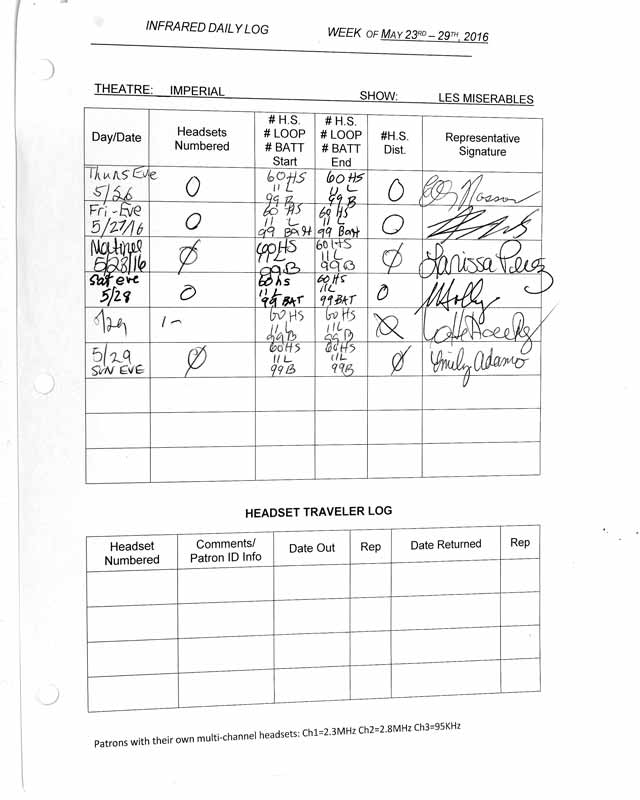 INFRARED DAILY LOG WEEK OF MAY 23RD – 29TH, 2016
THEATRE: IMPERIAL SHOW: LES MISERABLES
Day/Date Headsets Numbered # H.S. # LOOP # BATT Start # H.S. # LOOP # BATT End #H.S. Dist. Representative Signature
Thurs Eve 5/26 0 60HS 11L 99B 60HS 11L 99B 0
Fri-Eve 5/27/16 0 60 HS 11 L 99 Batt 60 HS 11 L 99 Batt 0
Matinee 5/28/16 Ø 60HS 11L 99B 60HS 11L 99B Ø Larissa Perez
Sat eve 5/28 0 60HS 11L 99 BAT 60HS 11L 99BAT 0 M Holly
5/29 1- 60HS 11L 99B 60HS 11L 99B
5/29 SUN EVE Ø 60HS 11L 99B 60HS 11L 99B Ø Emily Adamo
HEADSET TRAVELER LOG
Headset Numbered Comments/ Patron ID Info Date Out Rep Date Returned Rep
Patrons with their own multi-channel headsets: Ch1=2.3MHz Ch2=2.8MHz Ch3=95KHz